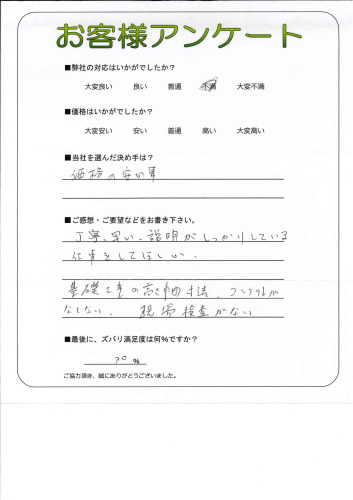 お客様アンケート
■弊社の対応はいかがでしたか？
大変良い 良い 普通 不満 大変不満
■価格はいかがでしたか？
大変安い 安い 普通 高い 大変高い
■当社を選んだ決め手は？
価格の安い事
■ご感想・ご要望などをお書き下さい。
丁寧、早い、説明がしっかりしている
仕事をしてほしい。
基礎工事の高さ 寸法、コンタクトが
なしない。 現場検査がない
■最後に、ズバリ満足度は何%ですか？
70 %
ご協力頂き、誠にありがとうございました。